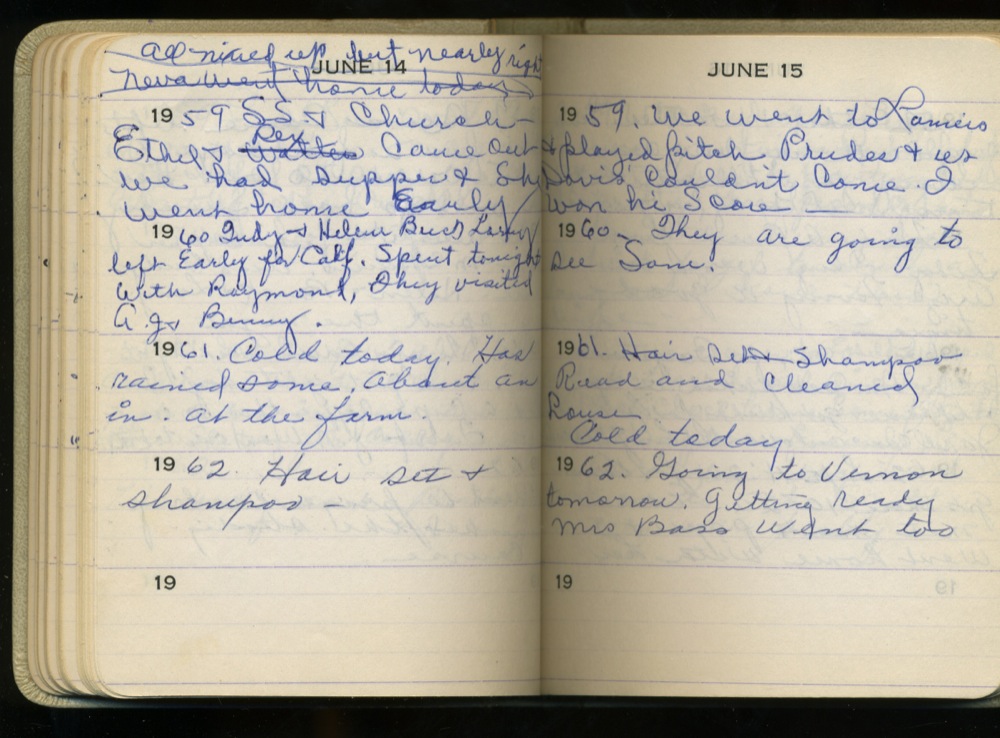 all mixed up but nearly right
JUNE 14
Neva went home today
1959 SS & Church -
Rex
Ethel & Came out
we had supper &
went home Early
1960 Judy & Helen Bud Larry
left Early for Calf. Spent tonight
with Raymond, They visited
A.J. & Benny.
1961. Cold today. Has
rained some. About an
in. at the farm.
1962. Hair set &
shampoo -
19
JUNE 15
1959. We went to
& played pitch Prudes & us
Davis Couldn't Come. I
won hi Score -
1960 - They are going to
see Sam.
1961. Hair set & Shampoo
Read and Cleaned
house
Cold today
1962. Going to Vernon
tomorrow. Getting ready
Mrs Bass Went too
19